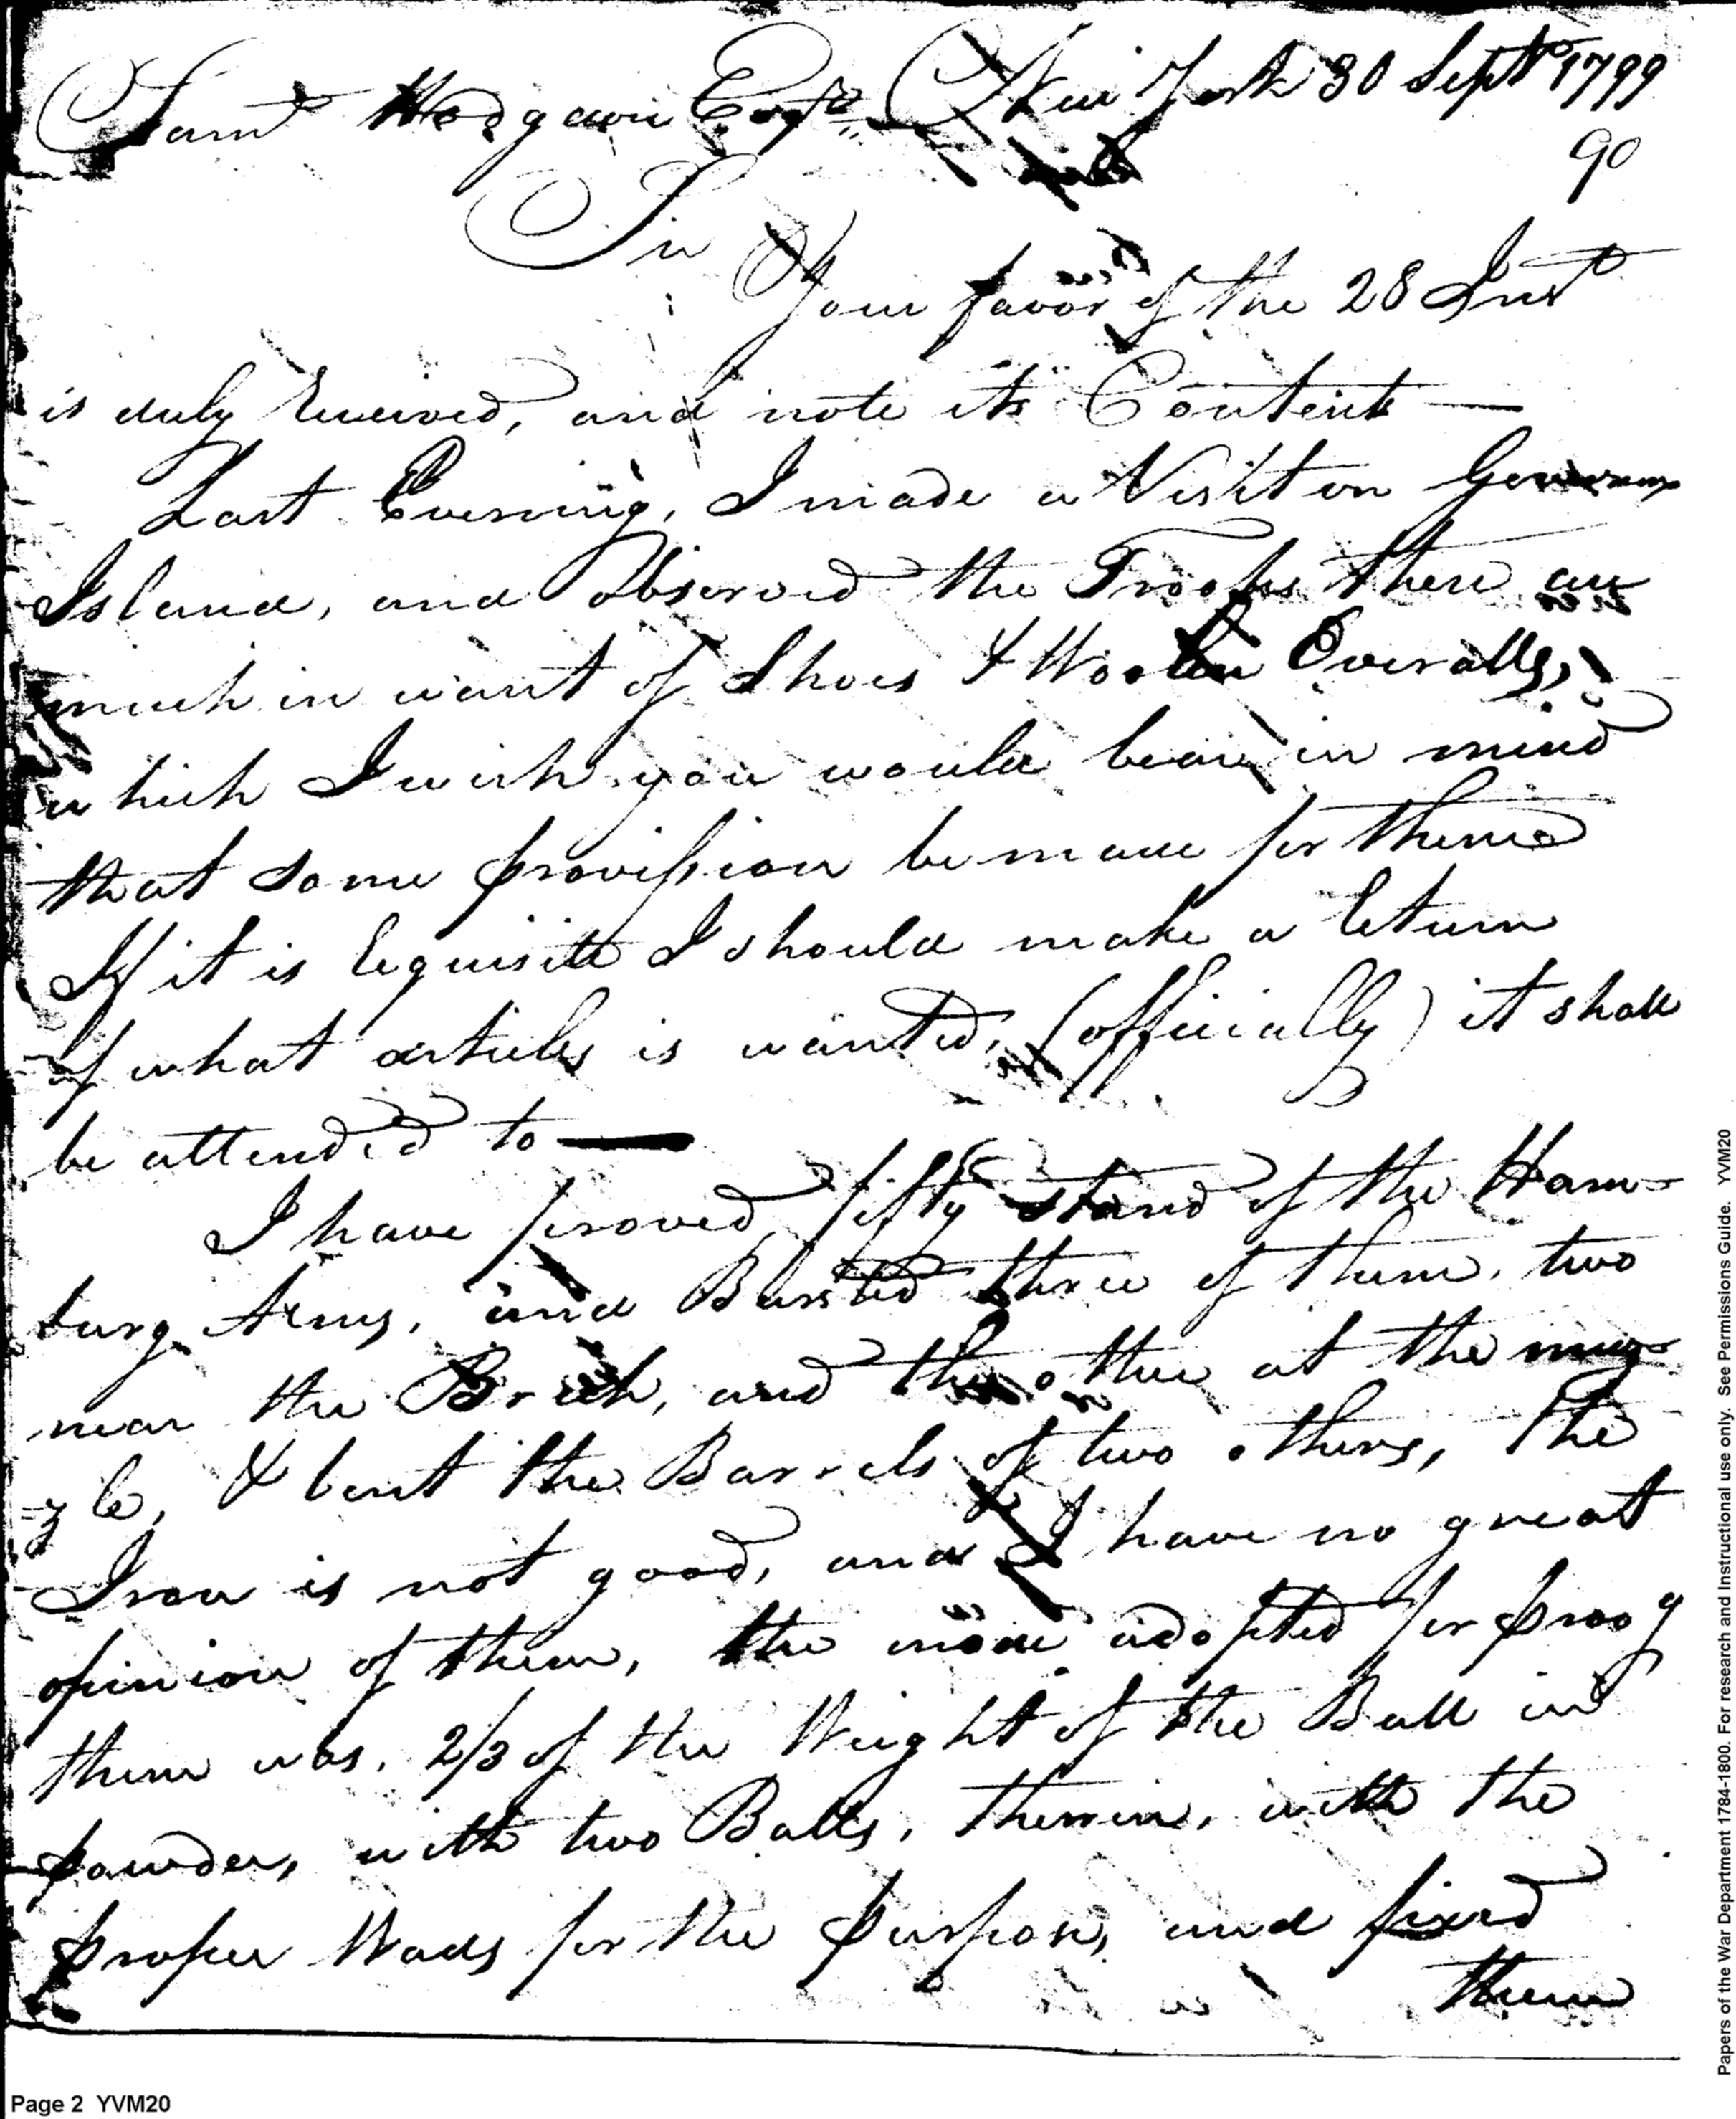 Saml Hodgdon Esqr New York 30 Septr 1799
90
Sir
Your favor of the 28 Inst
is duly received, and note its Contents —
Last Evening, I made a Visit on Governors
Island, and observed the Troops there are
much in want of Shoes & Woolen Overalls,
which I wish you would bear in mind
that some provission be made for them
If it is requisite I should make a return
of what articles is wanted, (officially) it shall
be attended to —
I have proved fifty stand of the Ham-
burg Arms, and Bursted three of them, two
near the Brich, and the other at the muz-
-zle, & bent the Barrels of two others, The
Iron is not good, and I have no great
opinion of them, the mode adopted for proog
them was, 2/3 of the Weight of the Ball in
powder, with two Balls, therein, with the
proper Wads for the purpose, and fixed
them
Page 2 YVM20
Papers of the War Department 1784-1800. For research and Instructional use only. See Permissions Guide. YVM20